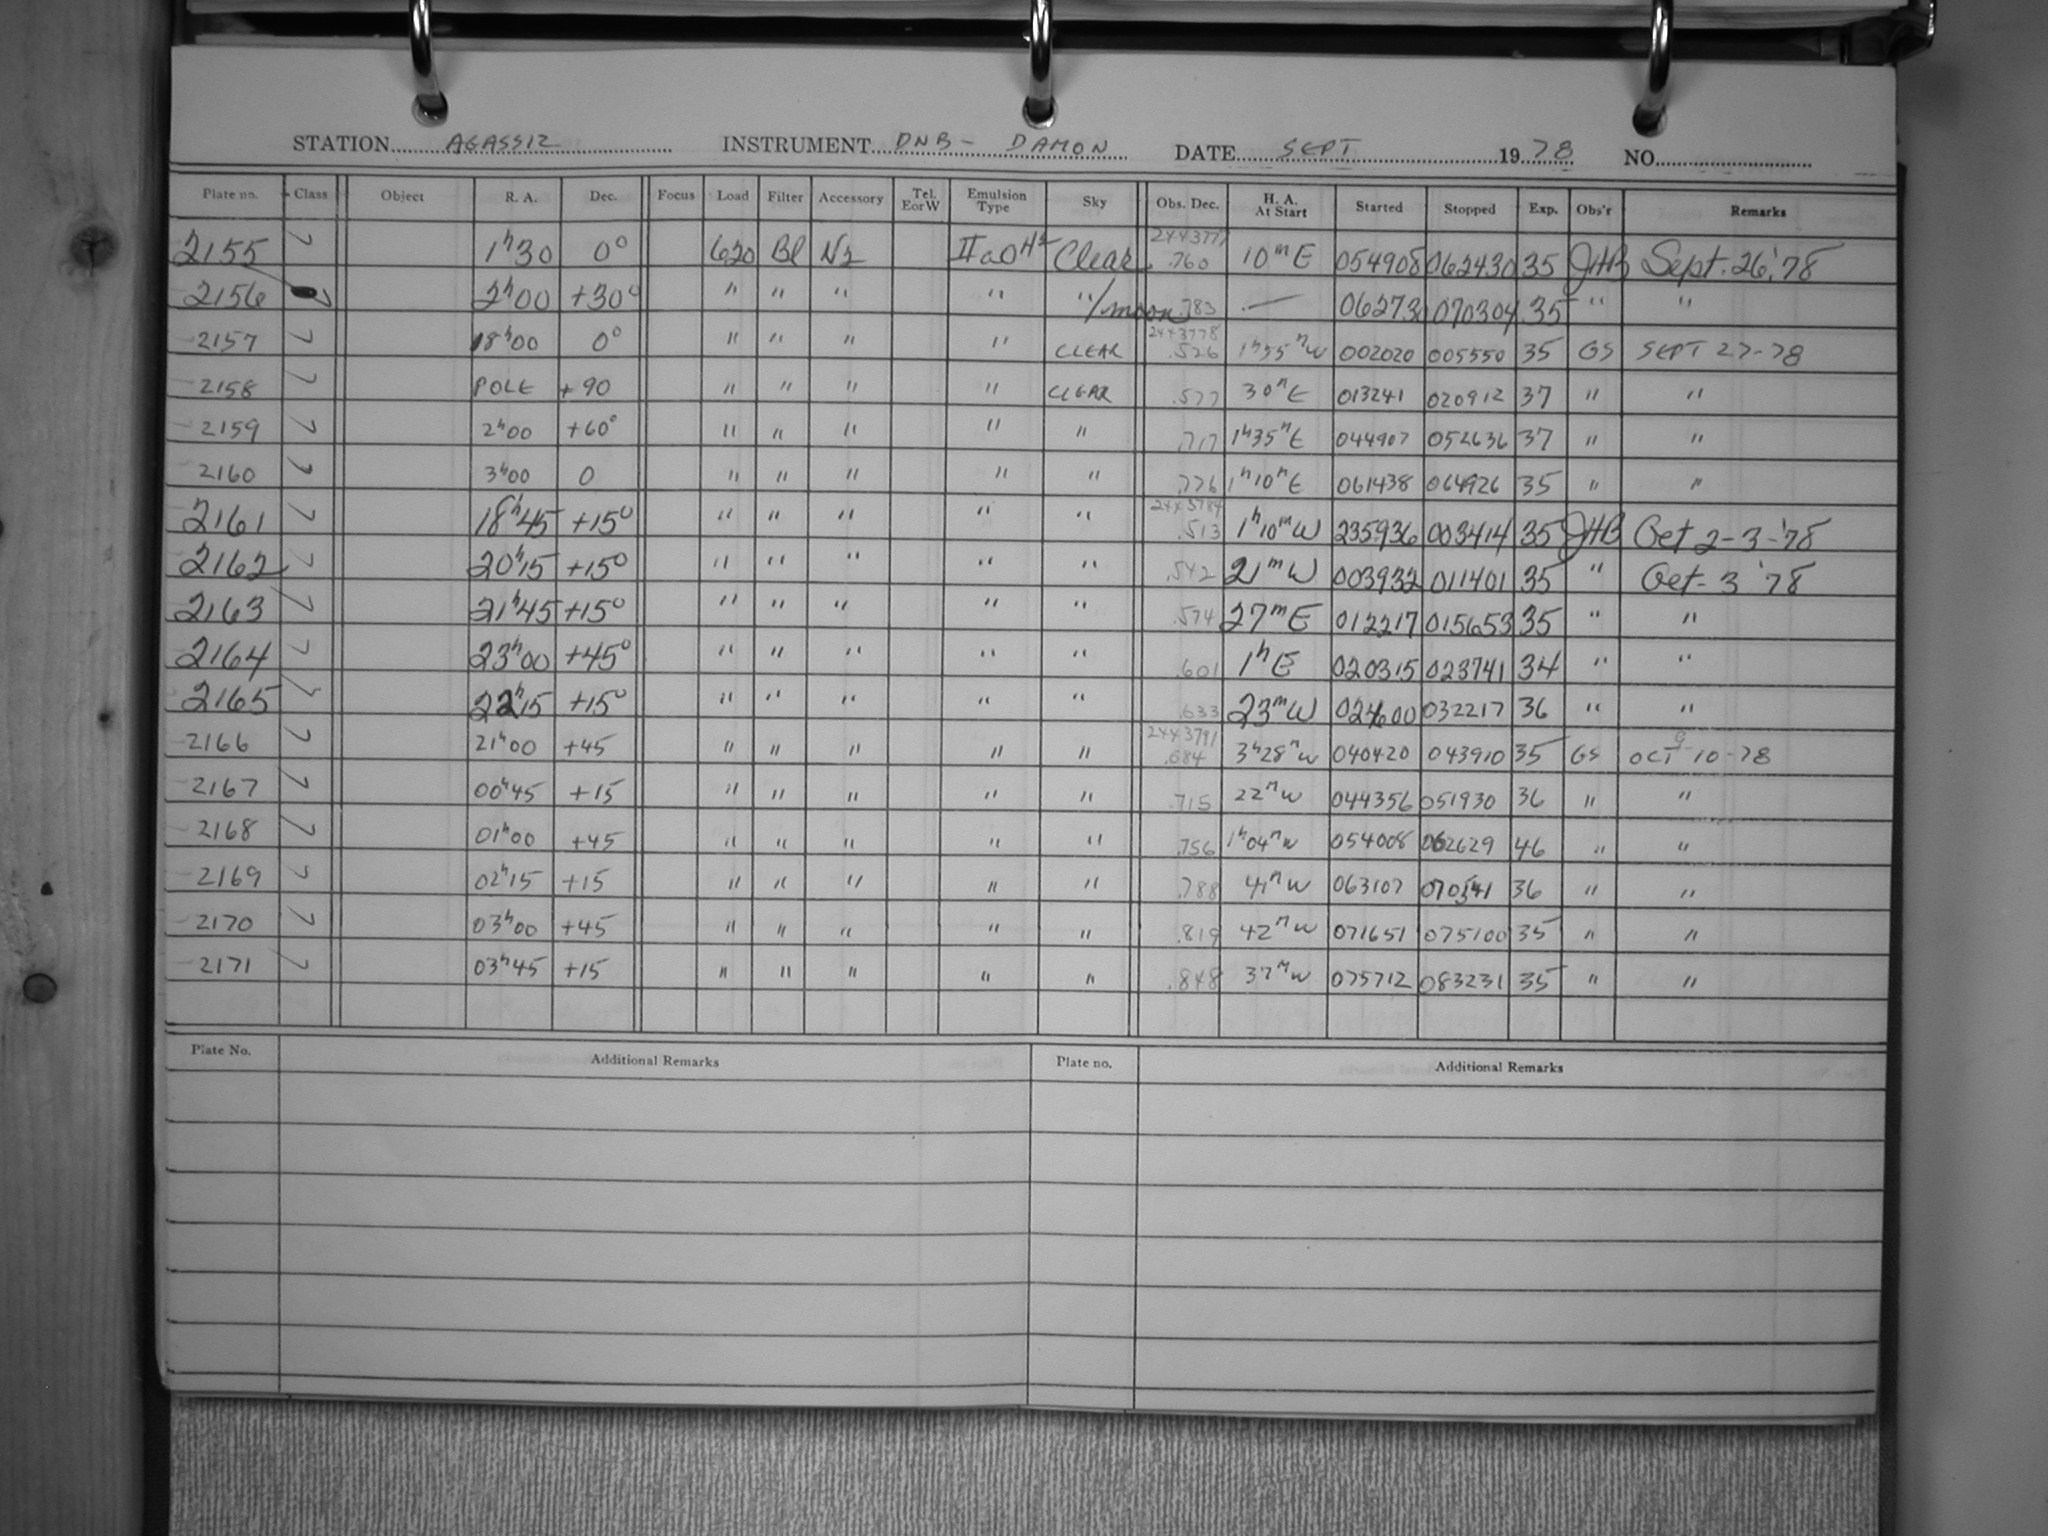 STATION AGASSIZ INSTRUMENT DNB - DAMON DATE SEPT 1978 NO.
Plate no. Class Object R. A. Dec. Focus Load Filter Accessory Tel. E or W Emulsion Type Sky Obs. Dec. H. A. At Start Started Stopped Exp. Obs'r Remarks
2155 1h30 0° 620 Bl N2 IIaO Clear 2443777 .760 10m E 054908 062430 35 JHB Sept. 26, '78
2156 2h00 +30° " " " " "/moon .783 — 06273 070304 35 " "
2157 18h00 0° " " " " CLEAR 2443778 .526 1h55m W 002020 005550 35 GS SEPT 27-78
2158 POLE +90 " " " " CLEAR .577 30m E 013241 020912 37 " "
2159 2h00 +60° " " " " " .717 1h35m E 044907 052636 37 " "
2160 3h00 0 " " " " " .776 1h10m E 061438 064926 35 " "
2161 18h45 +15° " " " " " 2443784 .513 1h10m W 235936 003414 35 JHB Oct 2-3-'78
2162 20h15 +15° " " " " " .542 21m W 003932 011401 35 " Oct-3 '78
2163 21h45 +15° " " " " " .574 27m E 012217 015653 35 " "
2164 23h00 +45° " " " " " .601 1h E 020315 023741 34 " "
2165 22h15 +15° " " " " " .633 23m W 024600 032217 36 " "
2166 21h00 +45 " " " " " 2443791 .684 3h28m W 040420 043910 35 GS OCT 10-78
2167 00h45 +15 " " " " " .715 22m W 044356 051930 36 " "
2168 01h00 +45 " " " " " .756 1h04m W 054008 062629 46 " "
2169 02h15 +15 " " " " " .788 41m W 063107 070541 36 " "
2170 03h00 +45 " " " " " .819 42m W 071651 075100 35 " "
2171 03h45 +15 " " " " " .848 37m W 075712 083231 35 " "
Plate No. Additional Remarks Plate no. Additional Remarks